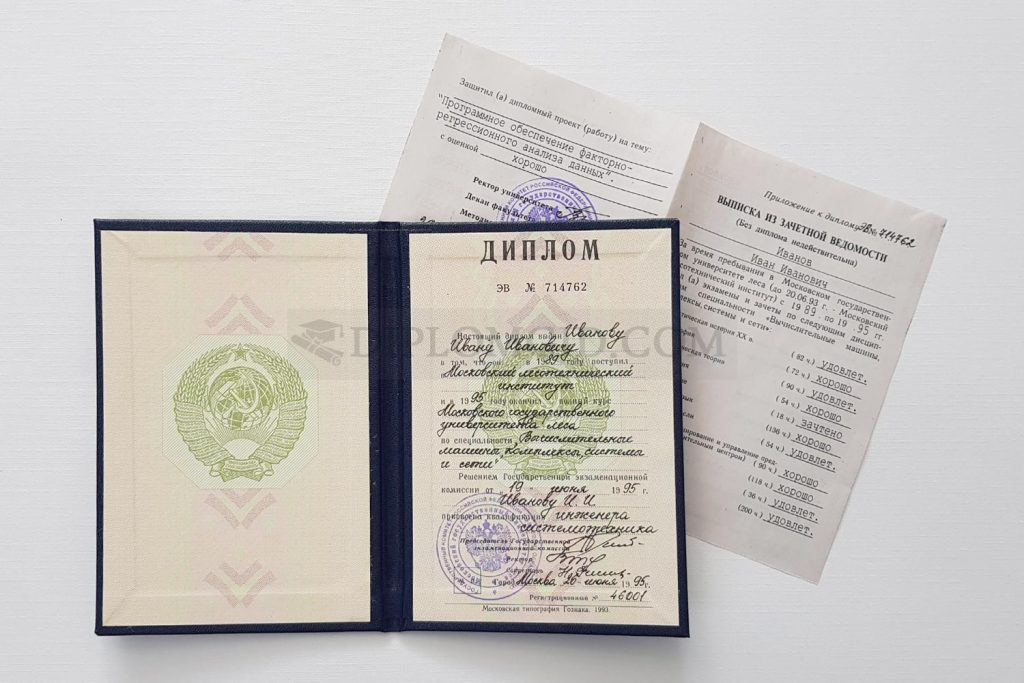 Защитил (а) дипломный проект (работу) на тему:
"Программное обеспечение факторно-
регрессионного анализа данных".
с оценкой хорошо
Ректор университета
Декан факультета
Приложение к диплому ЭВ № 714762
ВЫПИСКА ИЗ ЗАЧЕТНОЙ ВЕДОМОСТИ
(Без диплома недействительна)
Иванов
Иван Иванович
За время пребывания в Московском государствен-
ном университете леса (до 20.06.93 г. - Московский
лесотехнический институт) с 1989 по 1995 гг.
(а) экзамены и зачеты по следующим дисцип-
специальности «Вычислительные машины,
комплексы, системы и сети».
история XX в. (82 ч.) удовлет.
теория (72 ч.) хорошо
(90 ч.) удовлет.
(54 ч.) хорошо
(18 ч.) зачтено
(136 ч.) хорошо
(54 ч.) удовлет.
и управление пред-
центром) (90 ч.) хорошо
(118 ч.) хорошо
(36 ч.) удовлет.
(200 ч.) удовлет.
ДИПЛОМ
ЭВ № 714762
Настоящий диплом выдан Иванову
Ивану Ивановичу
в том, что он в 1989 году поступил
в Московский лесотехнический
институт
и в 1995 году окончил полный курс
Московского государственного
университета леса
по специальности „Вычислительные
машины, комплексы, системы
и сети"
Решением Государственной экзаменационной
комиссии от „19" июня 1995 г.
Иванову И. И.
присвоена квалификация инженера
системотехника
Председатель Государственной
экзаменационной комиссии
Ректор
Секретарь
Город Москва 26 июня 1995 г.
Регистрационный № 46001
Московская типография Гознака. 1993.